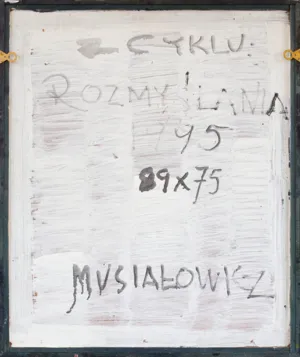 Z CYKLU:
ROZMYŚLANIA
'95
89x75
MUSIAŁOWICZ